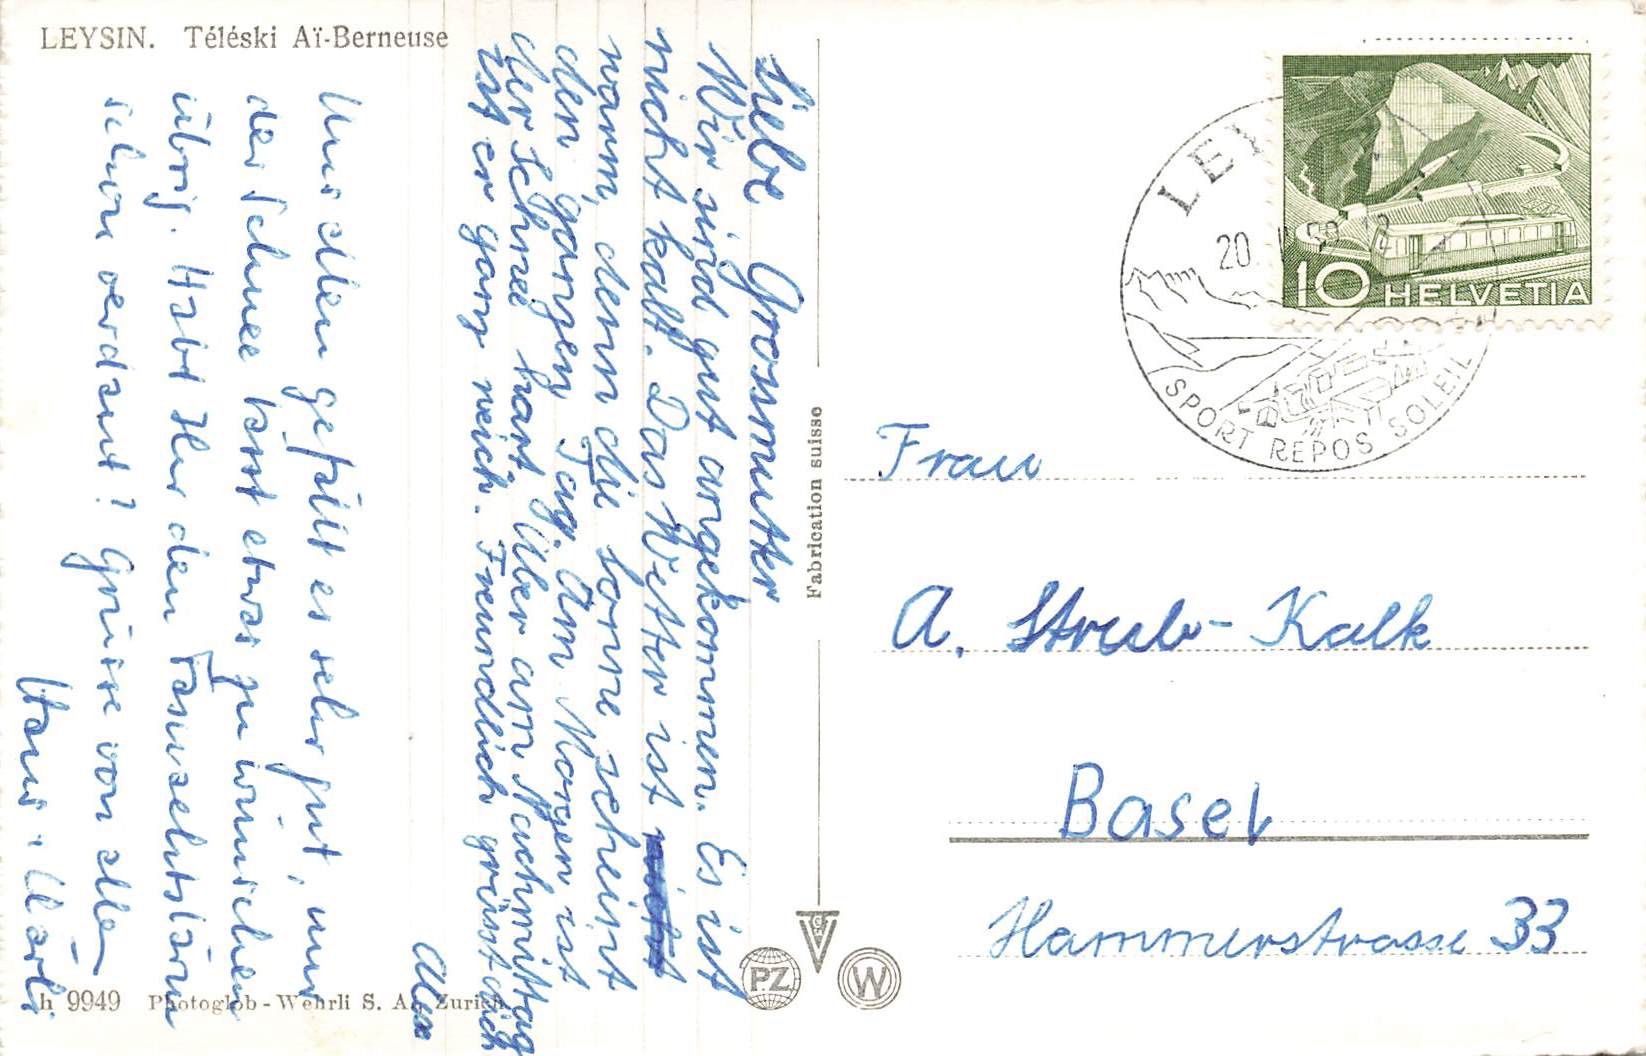 LEYSIN. Téléski Aï-Berneuse
Liebe Grossmutter
Wir sind gut angekommen. Es ist
nicht kalt. Das Wetter ist
warm, denn die Sonne scheint
den ganzen Tag. Am Morgen ist
der Schnee hart Aber am Nachmittag
ist er ganz weich. Freundlich grüsst dich
Alex
Uns allen gefällt es sehr gut, nur
der Schnee lässt etwas zu wünschen
übrig. Habt Ihr den Fasnachtslärm
schon verdaut? Grüsse von allen
Hans + Marli
Fabrication suisse
h 9949 Photoglob-Wehrli S. A., Zurich
PZ
W
LEY
20
SPORT REPOS SOLEIL
10 HELVETIA
Frau
A. Straub-Kalk
Basel
Hammerstrasse 33